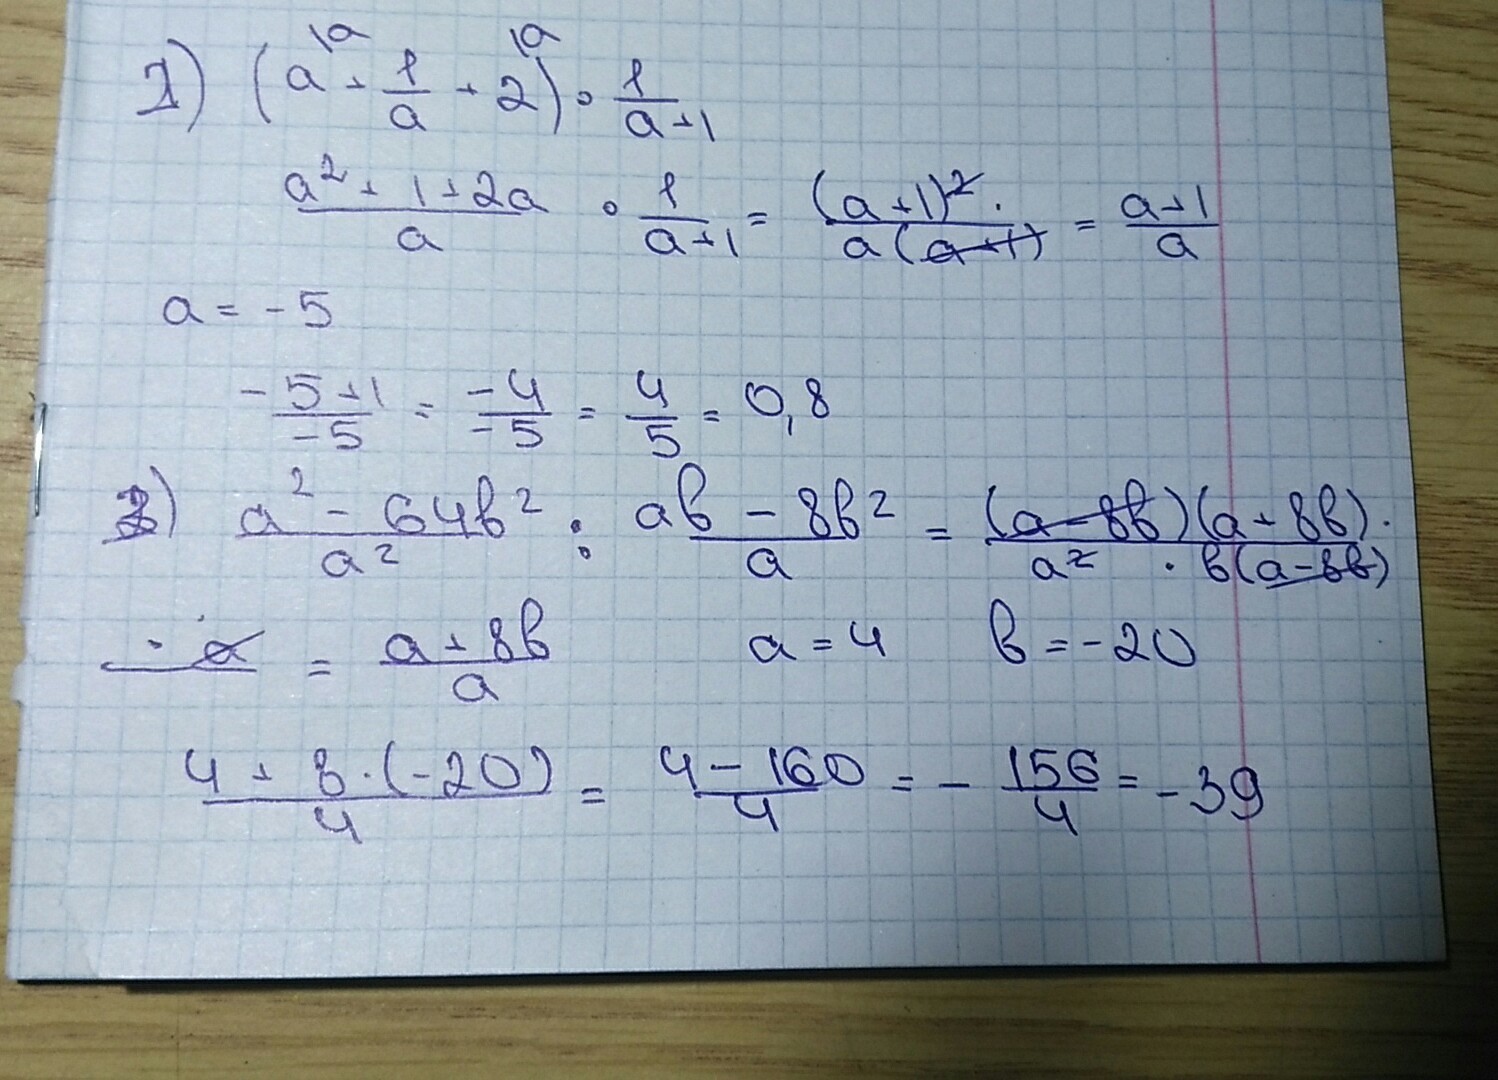 1) (a\a + 1/a + 2\a) · 1/(a+1)
(a² + 1 + 2a)/a · 1/(a+1) = (a+1)²/(a(a+1)) = (a+1)/a
a = -5
(-5+1)/(-5) = (-4)/(-5) = 4/5 = 0,8
2) (a² - 64b²)/a² : (ab - 8b²)/a = ((a-8b)(a+8b)·)/(a² · b(a-8b))
· a = (a+8b)/a a = 4 b = -20
(4 + 8·(-20))/4 = (4 - 160)/4 = - 156/4 = -39